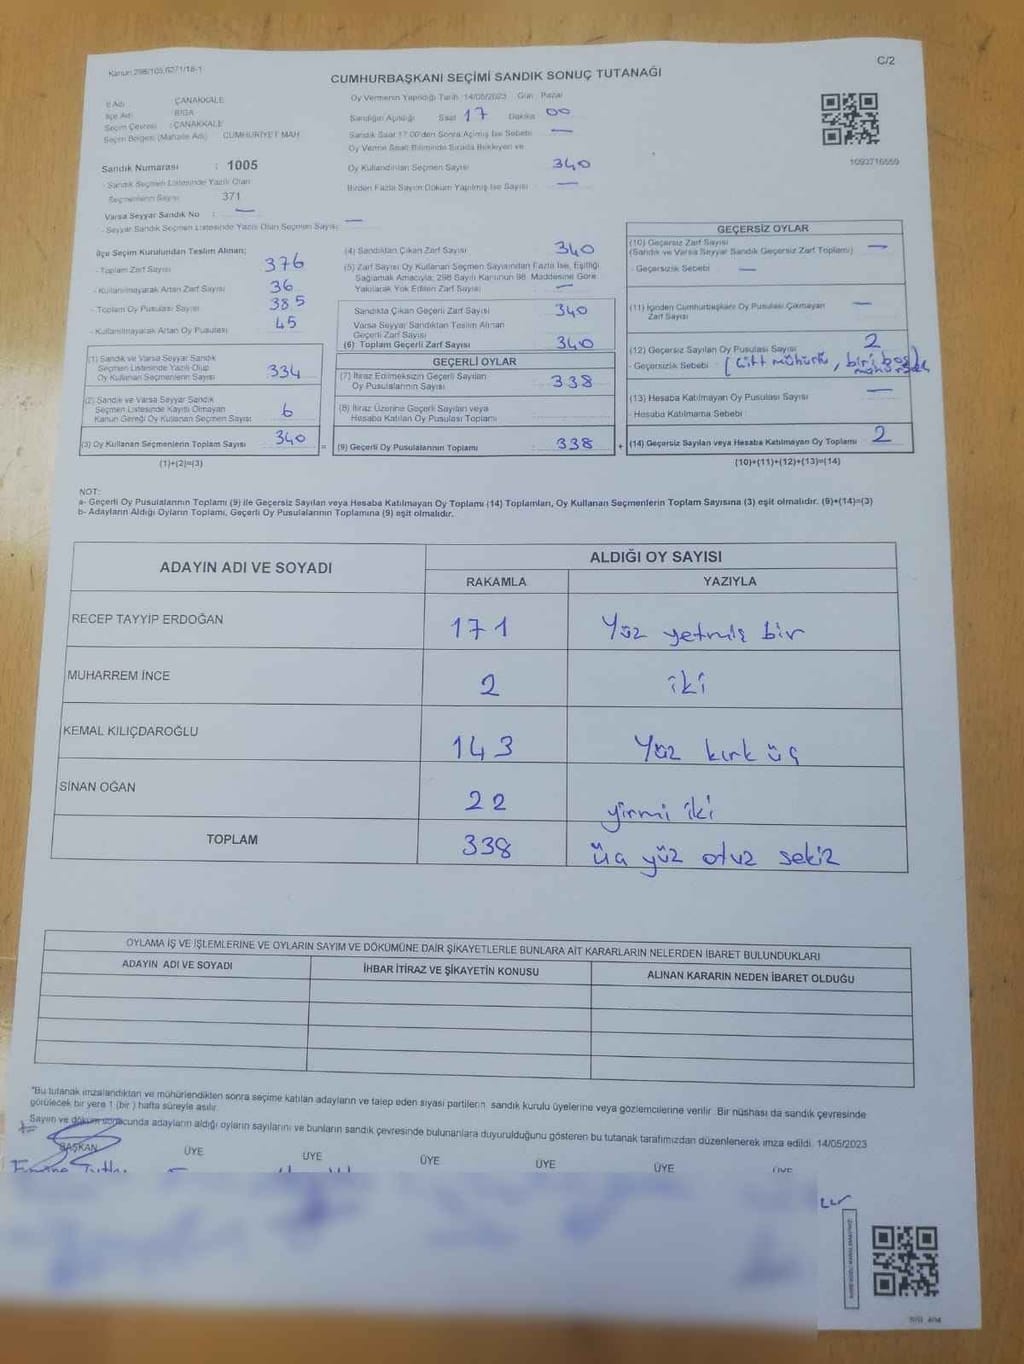 Kanun 298/105,6271/18-1
C/2
CUMHURBAŞKANI SEÇİMİ SANDIK SONUÇ TUTANAĞI
İl Adı : ÇANAKKALE
İlçe Adı : BİGA
Seçim Çevresi : ÇANAKKALE
Seçim Bölgesi (Mahalle Adı) : CUMHURİYET MAH.
Sandık Numarası : 1005
- Sandık Seçmen Listesinde Yazılı Olan
Seçmenlerin Sayısı : 371
Varsa Seyyar Sandık No : —
- Seyyar Sandık Seçmen Listesinde Yazılı Olan Seçmen Sayısı : —
Oy Vermenin Yapıldığı Tarih 14/05/2023 Gün : Pazar
Sandığın Açıldığı Saat 17 Dakika 00
Sandık Saat 17:00'den Sonra Açılmış İse Sebebi —
Oy Verme Saati Bitiminde Sırada Bekleyen ve
Oy Kullandırılan Seçmen Sayısı 340
Birden Fazla Sayım Döküm Yapılmış İse Sayısı —
1093716559
İlçe Seçim Kurulundan Teslim Alınan;
- Toplam Zarf Sayısı 376
- Kullanılmayarak Artan Zarf Sayısı 36
- Toplam Oy Pusulası Sayısı 385
- Kullanılmayarak Artan Oy Pusulası 45
(1) Sandık ve Varsa Seyyar Sandık
Seçmen Listesinde Yazılı Olup
Oy Kullanan Seçmenlerin Sayısı 334
(2) Sandık ve Varsa Seyyar Sandık
Seçmen Listesinde Kaydı Olmayan
Kanun Gereği Oy Kullanan Seçmen Sayısı 6
(3) Oy Kullanan Seçmenlerin Toplam Sayısı 340
(1)+(2)=(3)
(4) Sandıktan Çıkan Zarf Sayısı 340
(5) Zarf Sayısı Oy Kullanan Seçmen Sayısından Fazla İse, Eşitliği
Sağlamak Amacıyla; 298 Sayılı Kanunun 98. Maddesine Göre
Yakılarak Yok Edilen Zarf Sayısı —
Sandıkta Çıkan Geçerli Zarf Sayısı 340
Varsa Seyyar Sandıktan Teslim Alınan
Geçerli Zarf Sayısı
(6) Toplam Geçerli Zarf Sayısı 340
GEÇERLİ OYLAR
(7) İtiraz Edilmeksizin Geçerli Sayılan
Oy Pusulalarının Sayısı 338
(8) İtiraz Üzerine Geçerli Sayılan veya
Hesaba Katılan Oy Pusulası Toplamı
= (9) Geçerli Oy Pusulalarının Toplamı 338 +
GEÇERSİZ OYLAR
(10) Geçersiz Zarf Sayısı
(Sandık ve Varsa Seyyar Sandık Geçersiz Zarf Toplamı) —
- Geçersizlik Sebebi —
(11) İçinden Cumhurbaşkanı Oy Pusulası Çıkmayan
Zarf Sayısı —
(12) Geçersiz Sayılan Oy Pusulası Sayısı 2
- Geçersizlik Sebebi (çift mühürlü, biri başka
(13) Hesaba Katılmayan Oy Pusulası Sayısı —
- Hesaba Katılmama Sebebi
(14) Geçersiz Sayılan veya Hesaba Katılmayan Oy Toplamı 2
(10)+(11)+(12)+(13)=(14)
NOT:
a- Geçerli Oy Pusulalarının Toplamı (9) ile Geçersiz Sayılan veya Hesaba Katılmayan Oy Toplamı (14) Toplamları, Oy Kullanan Seçmenlerin Toplam Sayısına (3) eşit olmalıdır. (9)+(14)=(3)
b- Adayların Aldığı Oyların Toplamı, Geçerli Oy Pusulalarının Toplamına (9) eşit olmalıdır.
ADAYIN ADI VE SOYADI
ALDIĞI OY SAYISI
RAKAMLA YAZIYLA
RECEP TAYYİP ERDOĞAN 171 Yüz yetmiş bir
MUHARREM İNCE 2 iki
KEMAL KILIÇDAROĞLU 143 Yüz kırk üç
SİNAN OĞAN 22 yirmi iki
TOPLAM 338 üç yüz otuz sekiz
OYLAMA İŞ VE İŞLEMLERİNE VE OYLARIN SAYIM VE DÖKÜMÜNE DAİR ŞİKAYETLERLE BUNLARA AİT KARARLARIN NELERDEN İBARET BULUNDUKLARI
ADAYIN ADI VE SOYADI İHBAR İTİRAZ VE ŞİKAYETİN KONUSU ALINAN KARARIN NEDEN İBARET OLDUĞU
"Bu tutanak imzalandıktan ve mühürlendikten sonra seçime katılan adayların ve talep eden siyasi partilerin sandık kurulu üyelerine veya gözlemcilerine verilir. Bir nüshası da sandık çevresinde
görülecek bir yere 1 (bir) hafta süreyle asılır.
Sayım ve döküm sonucunda adayların aldığı oyların sayılarını ve bunların sandık çevresinde bulunanlara duyurulduğunu gösteren bu tutanak tarafımızdan düzenlenerek imza edildi. 14/05/2023
BAŞKAN ÜYE ÜYE ÜYE ÜYE ÜYE ÜYE